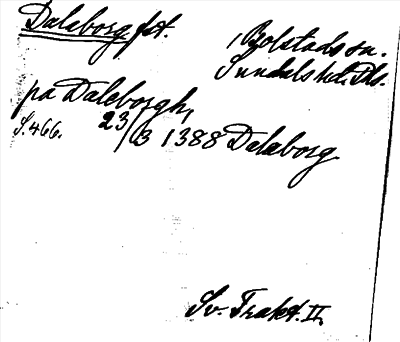 Daleborg fst.
, Bolstads sn.
Sundals hd. Dls.
pa Daleborgh,
S. 466. 23/3 1388 Daleborg
Sv. Trakt. II,